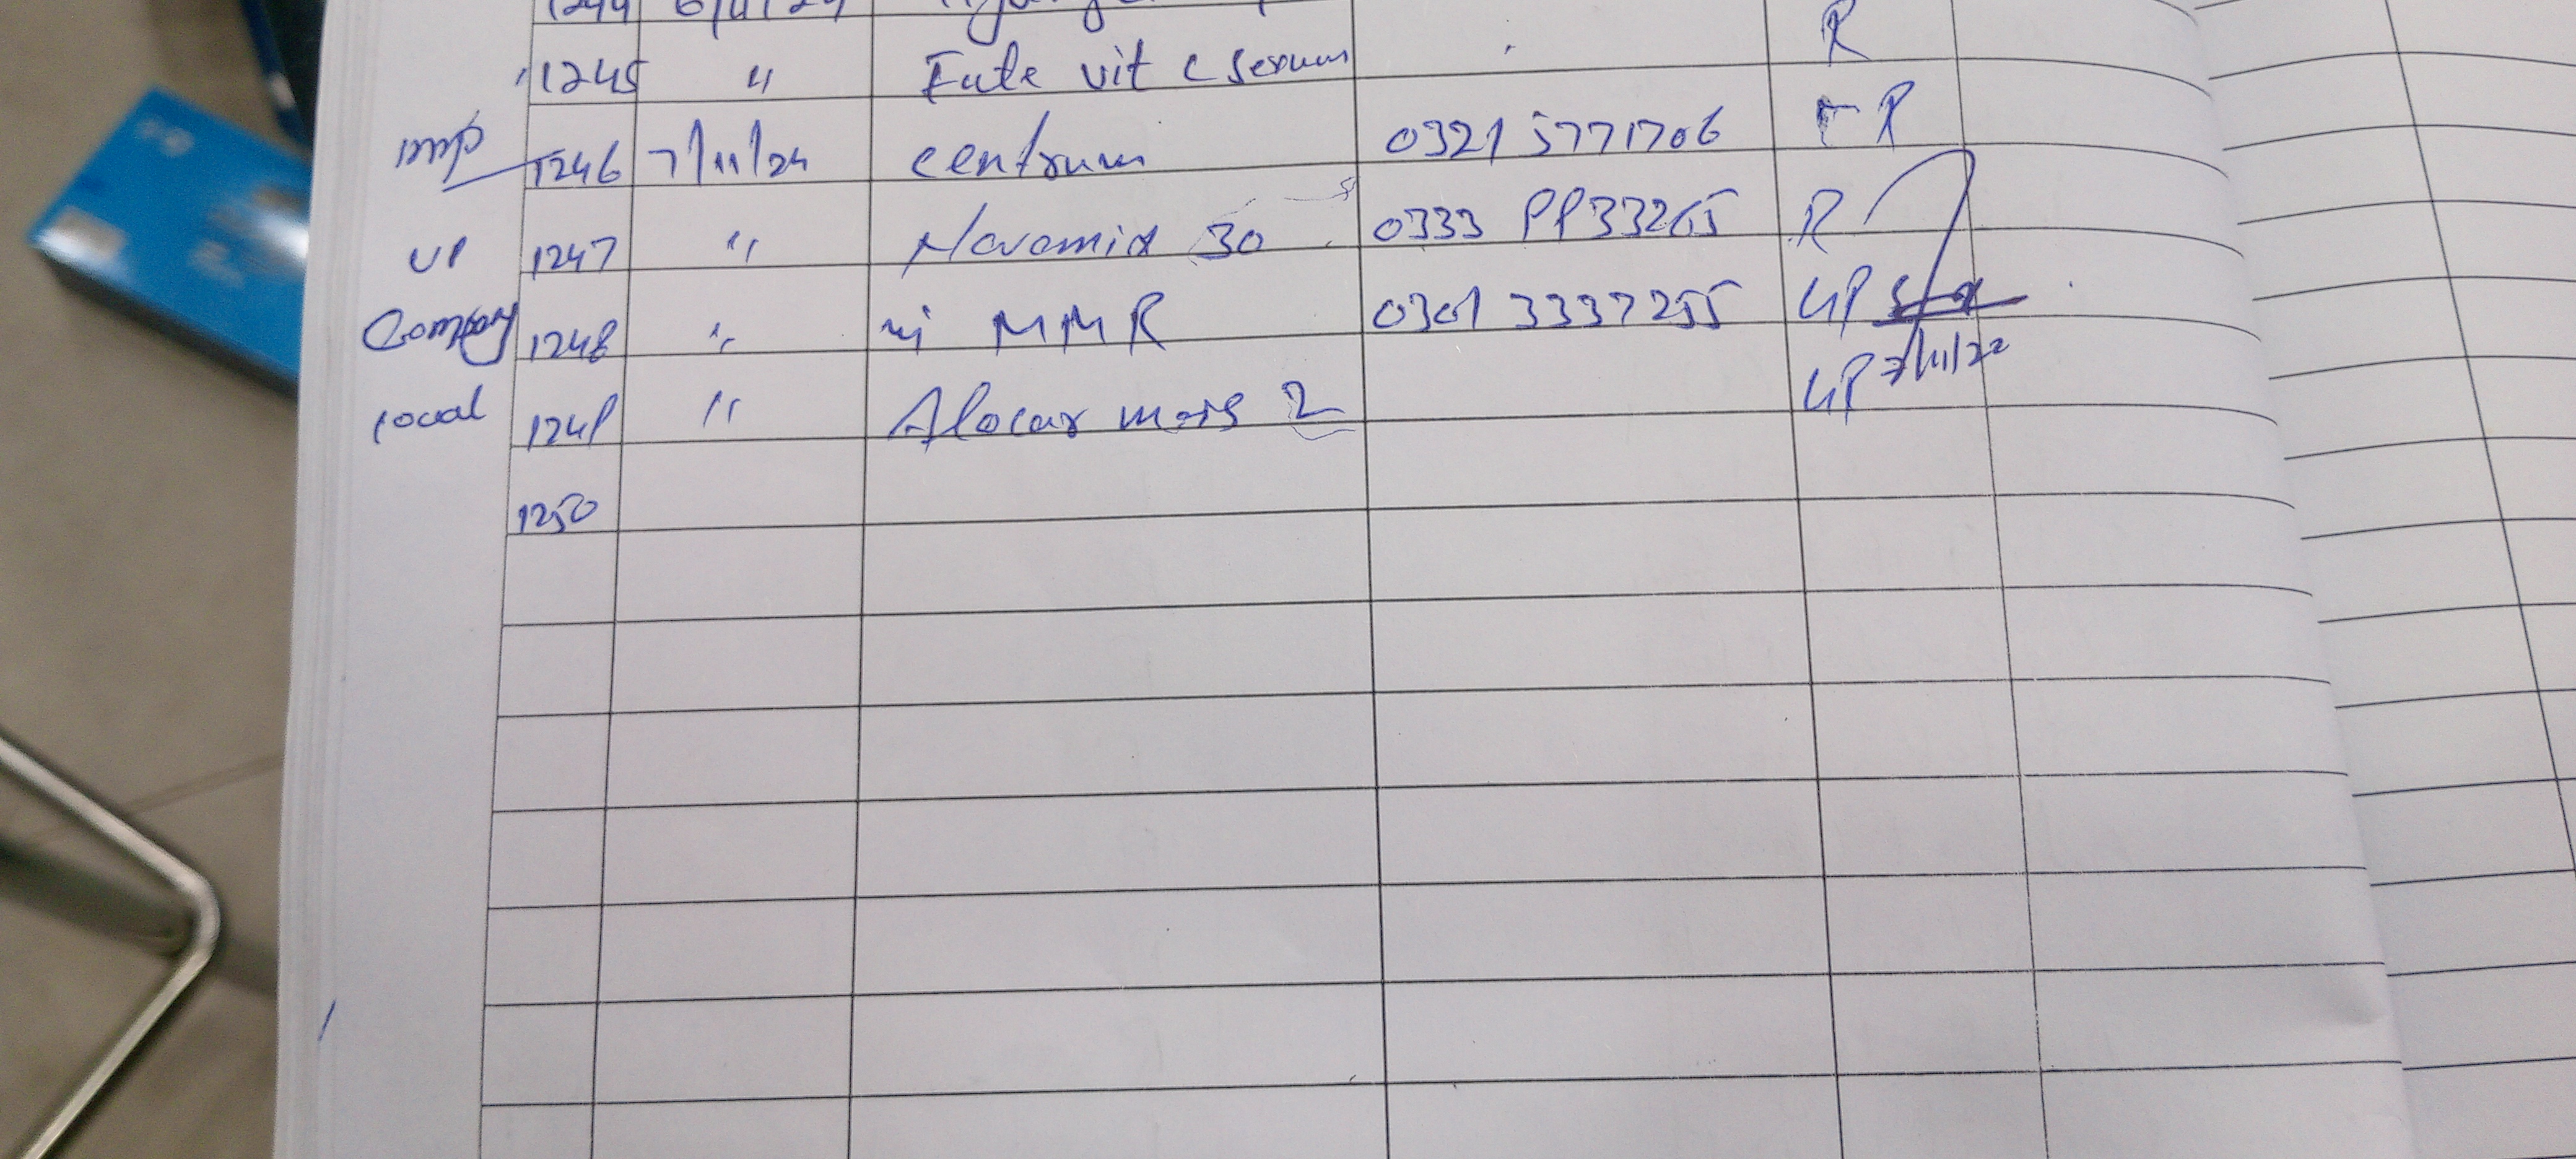 1244 6/11/24
1245 " Fute vit c serum R
imp 1246 7/11/24 centrum 0321 5771706 R
UP 1247 " Novomix 30 0333 9933265 R
Company 1248 " inj MMR 0301 3337255 UP
local 1249 " Alocar mois 2 UP 7/11/22
1250